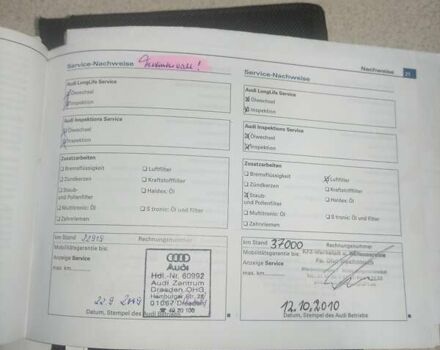 Service-Nachweise
Audi LongLife Service
Ölwechsel
Inspektion
Audi Inspektions Service
Ölwechsel
Inspektion
Zusatzarbeiten
Bremsflüssigkeit
Luftfilter
Zündkerzen
Kraftstofffilter
Staub-
und Pollenfilter
Haldex: Öl
Multitronic: Öl
S tronic: Öl und Filter
Zahnriemen
km Stand
Rechnungsnummer
Mobilitätsgarantie bis:
Anzeige Service
max. km
Audi
Hdl.-Nr. 60992
Audi Zentrum
Dresden OHG
Hamburger Str.
01067 Dresden
22.9
Datum, Stempel des Audi Betriebs
Nachweise
21
Service-Nachweise
Audi LongLife Service
Ölwechsel
Inspektion
Audi Inspektions Service
Ölwechsel
Inspektion
Zusatzarbeiten
Bremsflüssigkeit
Luftfilter
Zündkerzen
Kraftstofffilter
Staub-
und Pollenfilter
Haldex: Öl
Multitronic: Öl
S tronic: Öl und Filter
Zahnriemen
km Stand 37000
Rechnungsnummer
Mobilitätsgarantie bis:
Anzeige Service
max. km
12.10.2010
Datum, Stempel des Audi Betriebs